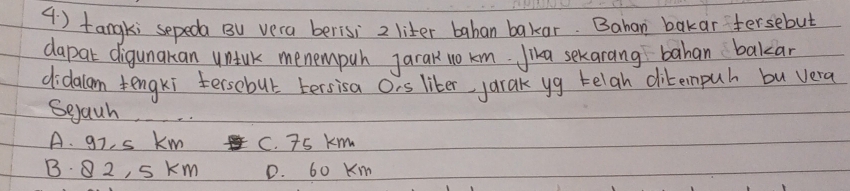 4.) tangki sepeda BU vera berisi 2 liter bahan bakar. Bahan bakar tersebut
dapat digunakan untuk menempuh jarak 110 km. Jika sekarang bahan bakar
didalam tengki tersebut tersisa 0,5 liter, jarak yg telah ditempuh bu Vera
Sejauh ......
A. 97,5 km C. 75 km
B. 82,5 km D. 60 km